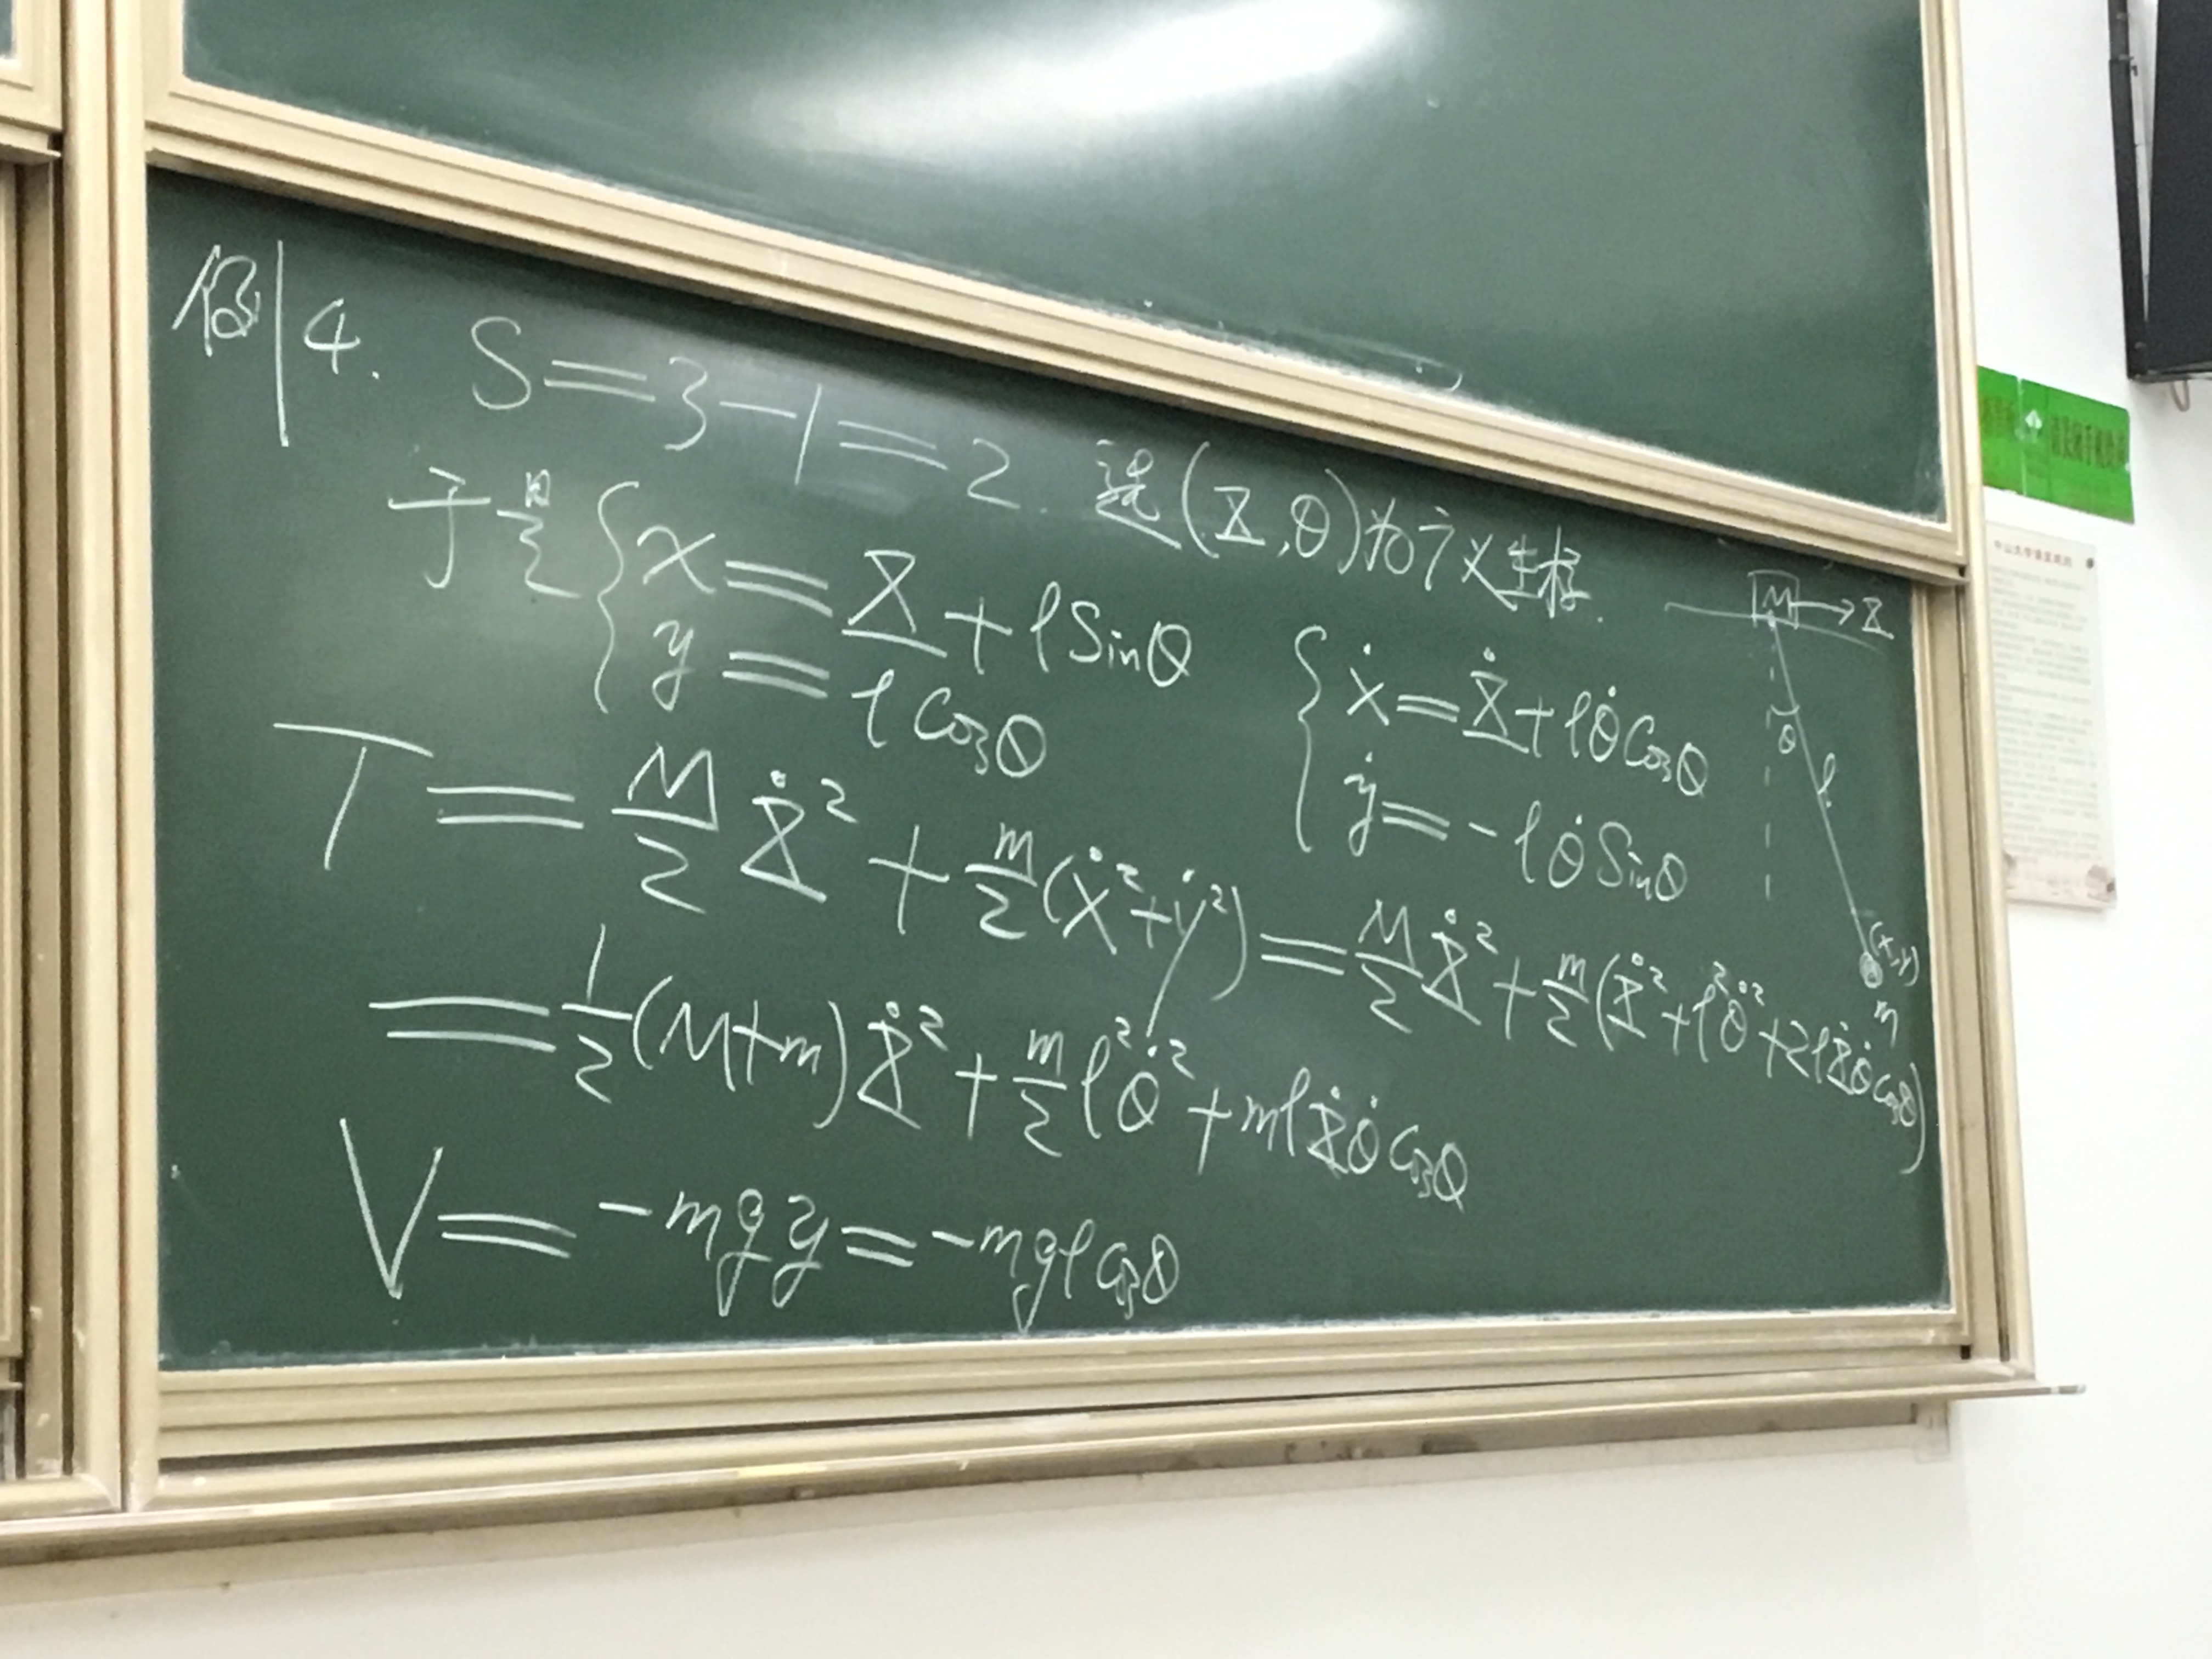 例4. S=3-1=2. 选(X,θ)为广义坐标.
于是 { x = X + l Sinθ
y = l Cosθ
{ ẋ = Ẋ + lθ̇ Cosθ
ẏ = -lθ̇ Sinθ
T = M/2 Ẋ² + m/2 (ẋ² + ẏ²) = M/2 Ẋ² + m/2 (Ẋ² + l²θ̇² + 2lẊθ̇ Cosθ)
= 1/2 (M+m) Ẋ² + m/2 l²θ̇² + mlẊθ̇ Cosθ
V = -mgy = -mgl Cosθ
M → X
θ
l
(x,y)
m